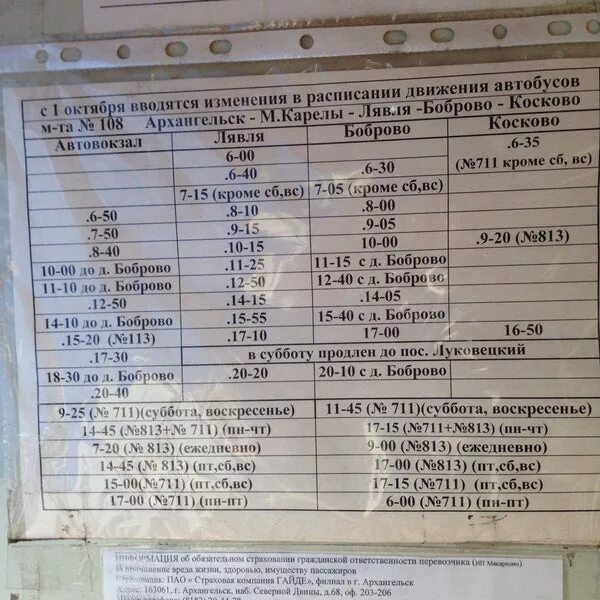 с 1 октября вводятся изменения в расписании движения автобусов
м-та № 108 Архангельск - М.Карелы - Лявля -Боброво - Косково
Автовокзал Лявля Боброво Косково
6-00 .6-35
.6-40 .6-30 (№711 кроме сб, вс)
7-15 (кроме сб,вс) 7-05 (кроме сб,вс)
.6-50 .8-10 .8-00
.7-50 .9-15 .9-05
.8-40 .10-15 10-00 .9-20 (№813)
10-00 до д. Боброво .11-25 11-15 с д. Боброво
11-10 до д. Боброво .12-50 12-40 с д. Боброво
.12-50 .14-15 .14-05
14-10 до д. Боброво .15-55 15-40 с д. Боброво
.15-20 (№113) .17-10 17-00 16-50
.17-30 в субботу продлен до пос. Луковецкий
18-30 до д. Боброво .20-20 20-10 с д. Боброво
.20-40
9-25 (№ 711)(суббота, воскресенье) 11-45 (№ 711)(суббота, воскресенье)
14-45 (№813+№ 711) (пн-чт) 17-15 (№711+№813) (пн-чт)
7-20 (№ 813) (ежедневно) 9-00 (№813) (ежедневно)
14-45 (№ 813) (пт,сб,вс) 17-00 (№813) (пт,сб,вс)
15-00(№711) (пт,сб,вс) 17-15 (№711) (пт,сб,вс)
17-00 (№711) (пн-пт) 6-00 (№711) (пн-пт)
ИНФОРМАЦИЯ об обязательном страховании гражданской ответственности перевозчика (ИП Макарилин)
за причинение вреда жизни, здоровью, имуществу пассажиров
Страховщик: ПАО « Страховая компания ГАЙДЕ», филиал в г. Архангельск
Адрес: 163061, г. Архангельск, наб. Северной Двины, д.68, оф. 203-206